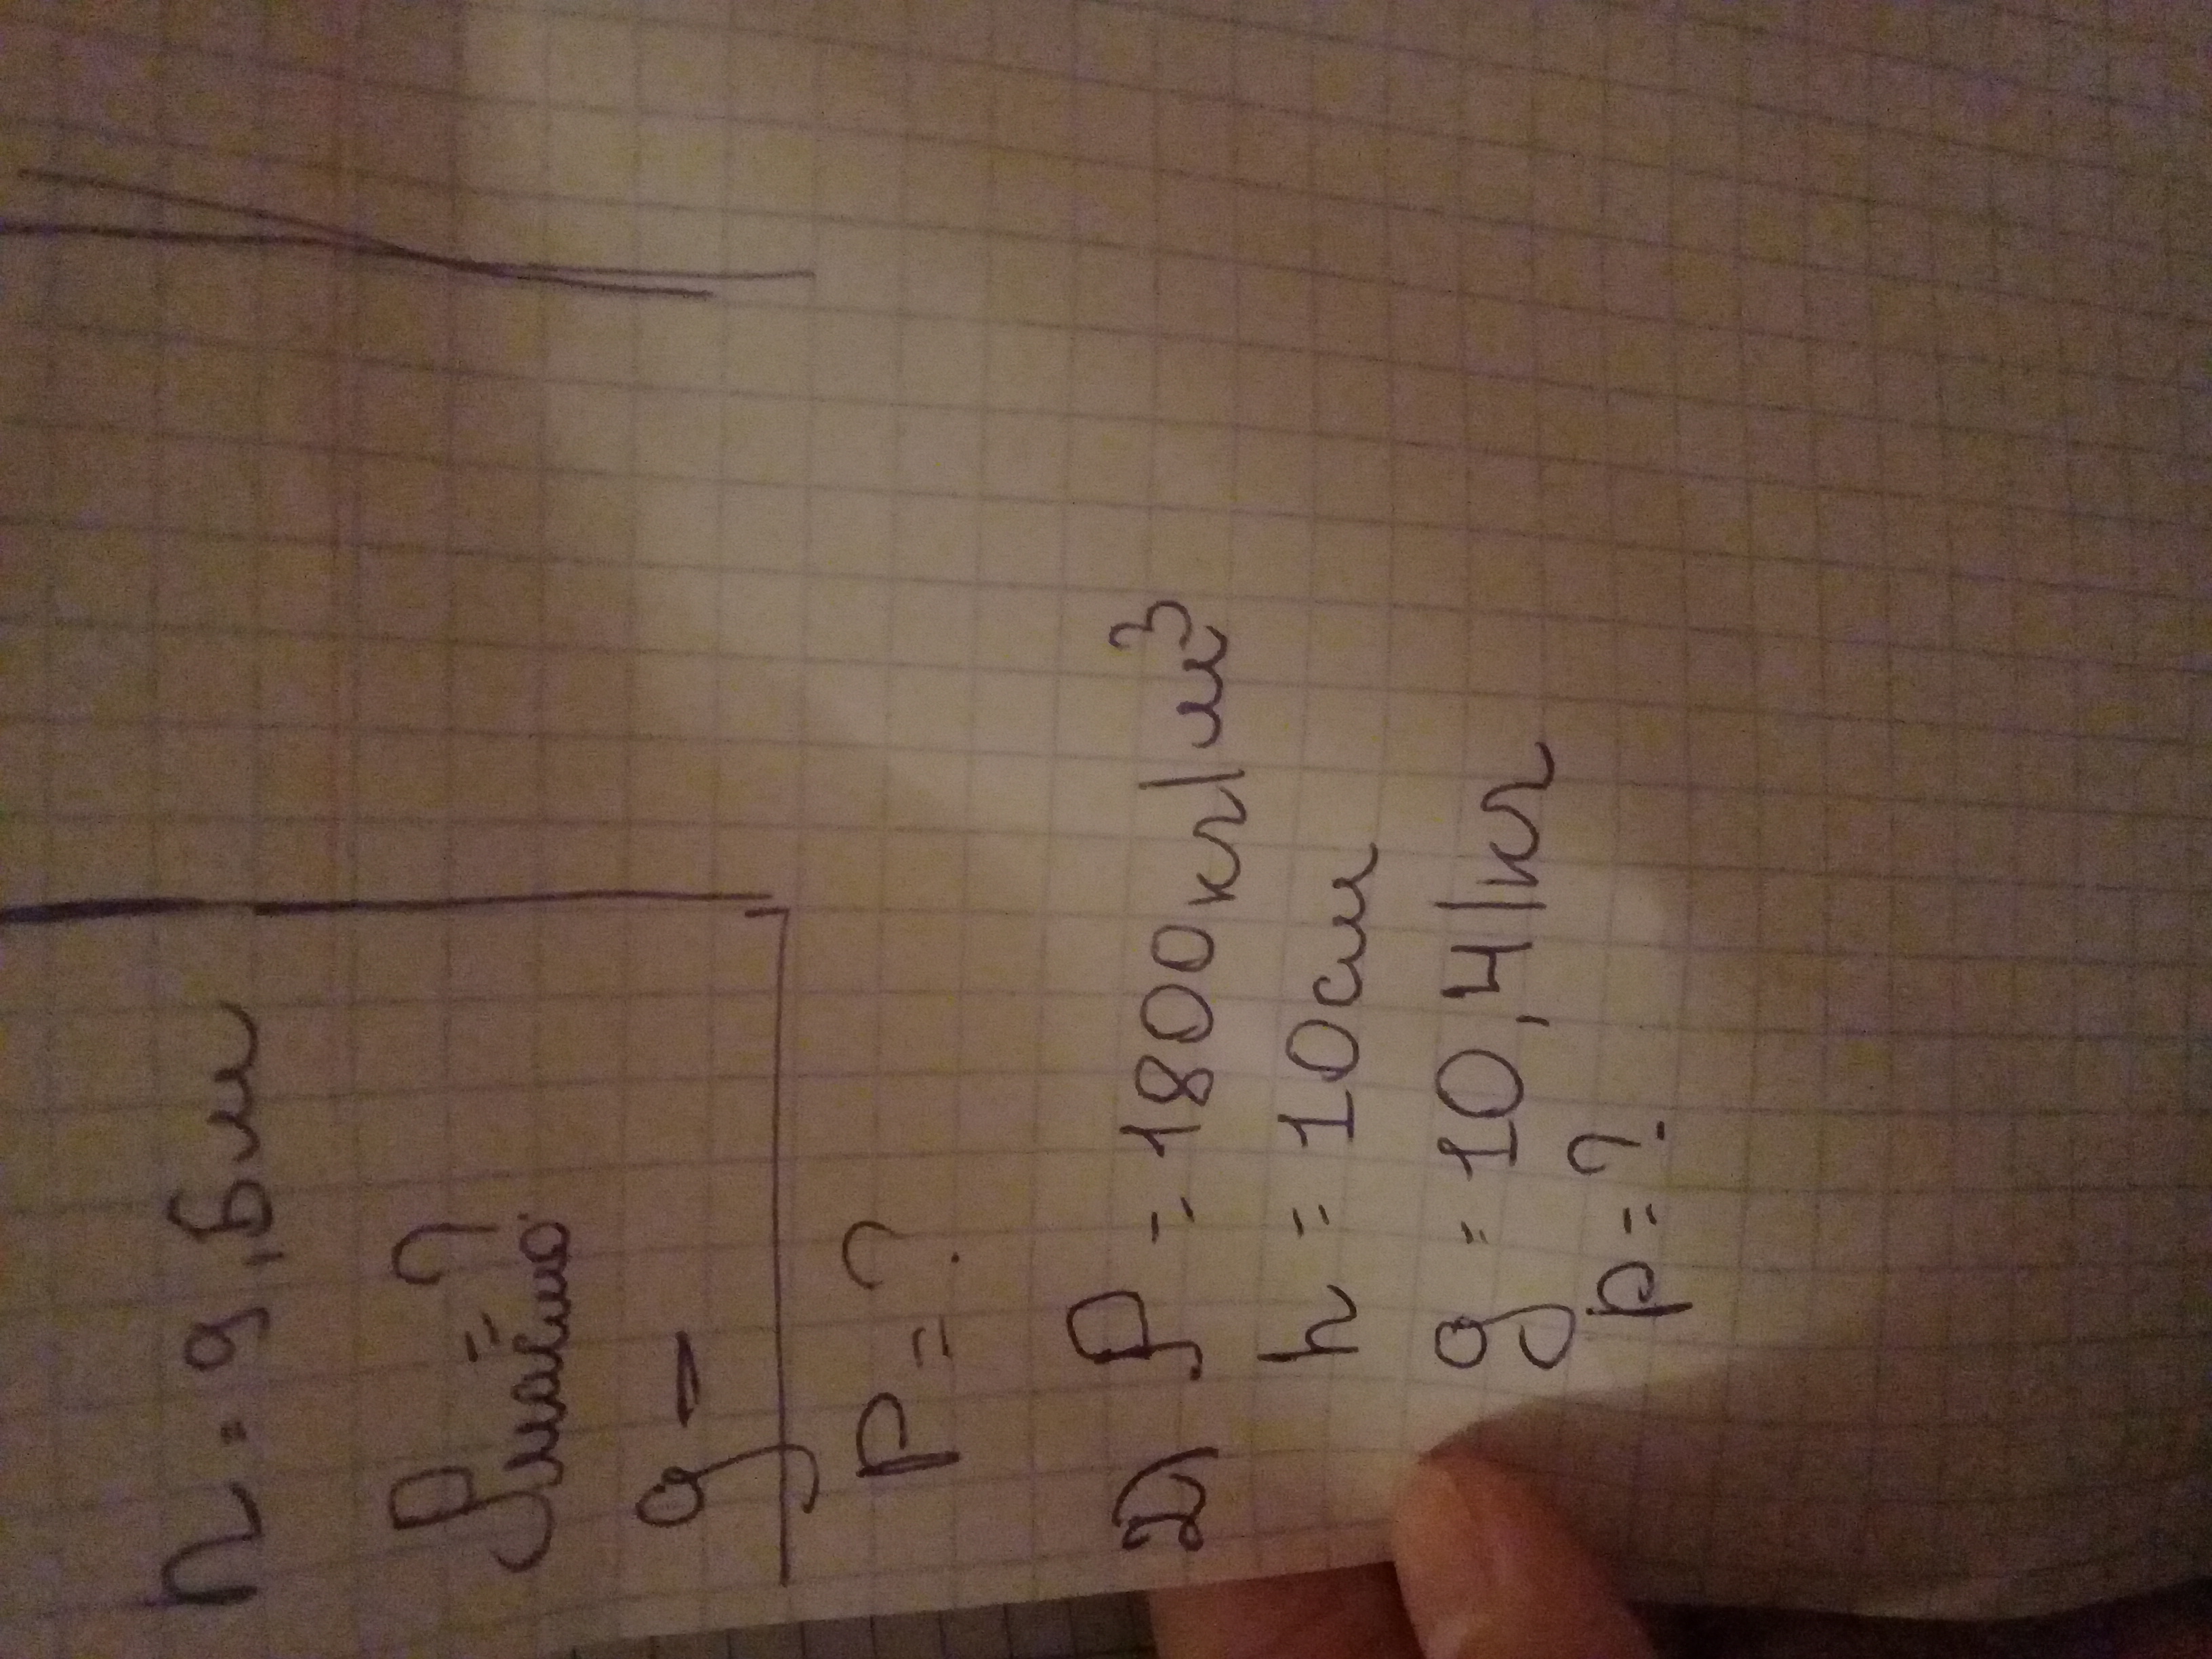 h = 9,6м
ρмасло = ?
g -
p = ?
2) ρ = 1800кг/м³
h = 10см
g = 10, Н/кг
p = ?